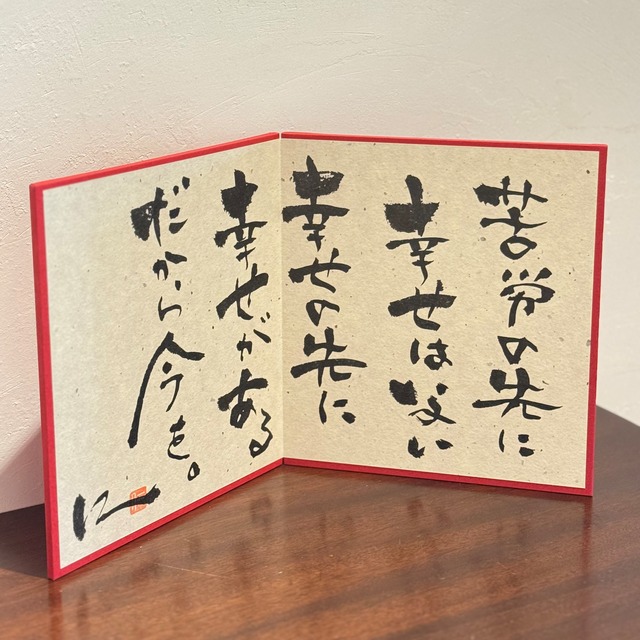 苦労の先に
幸せはない
幸せの先に
幸せがある
だから今を。